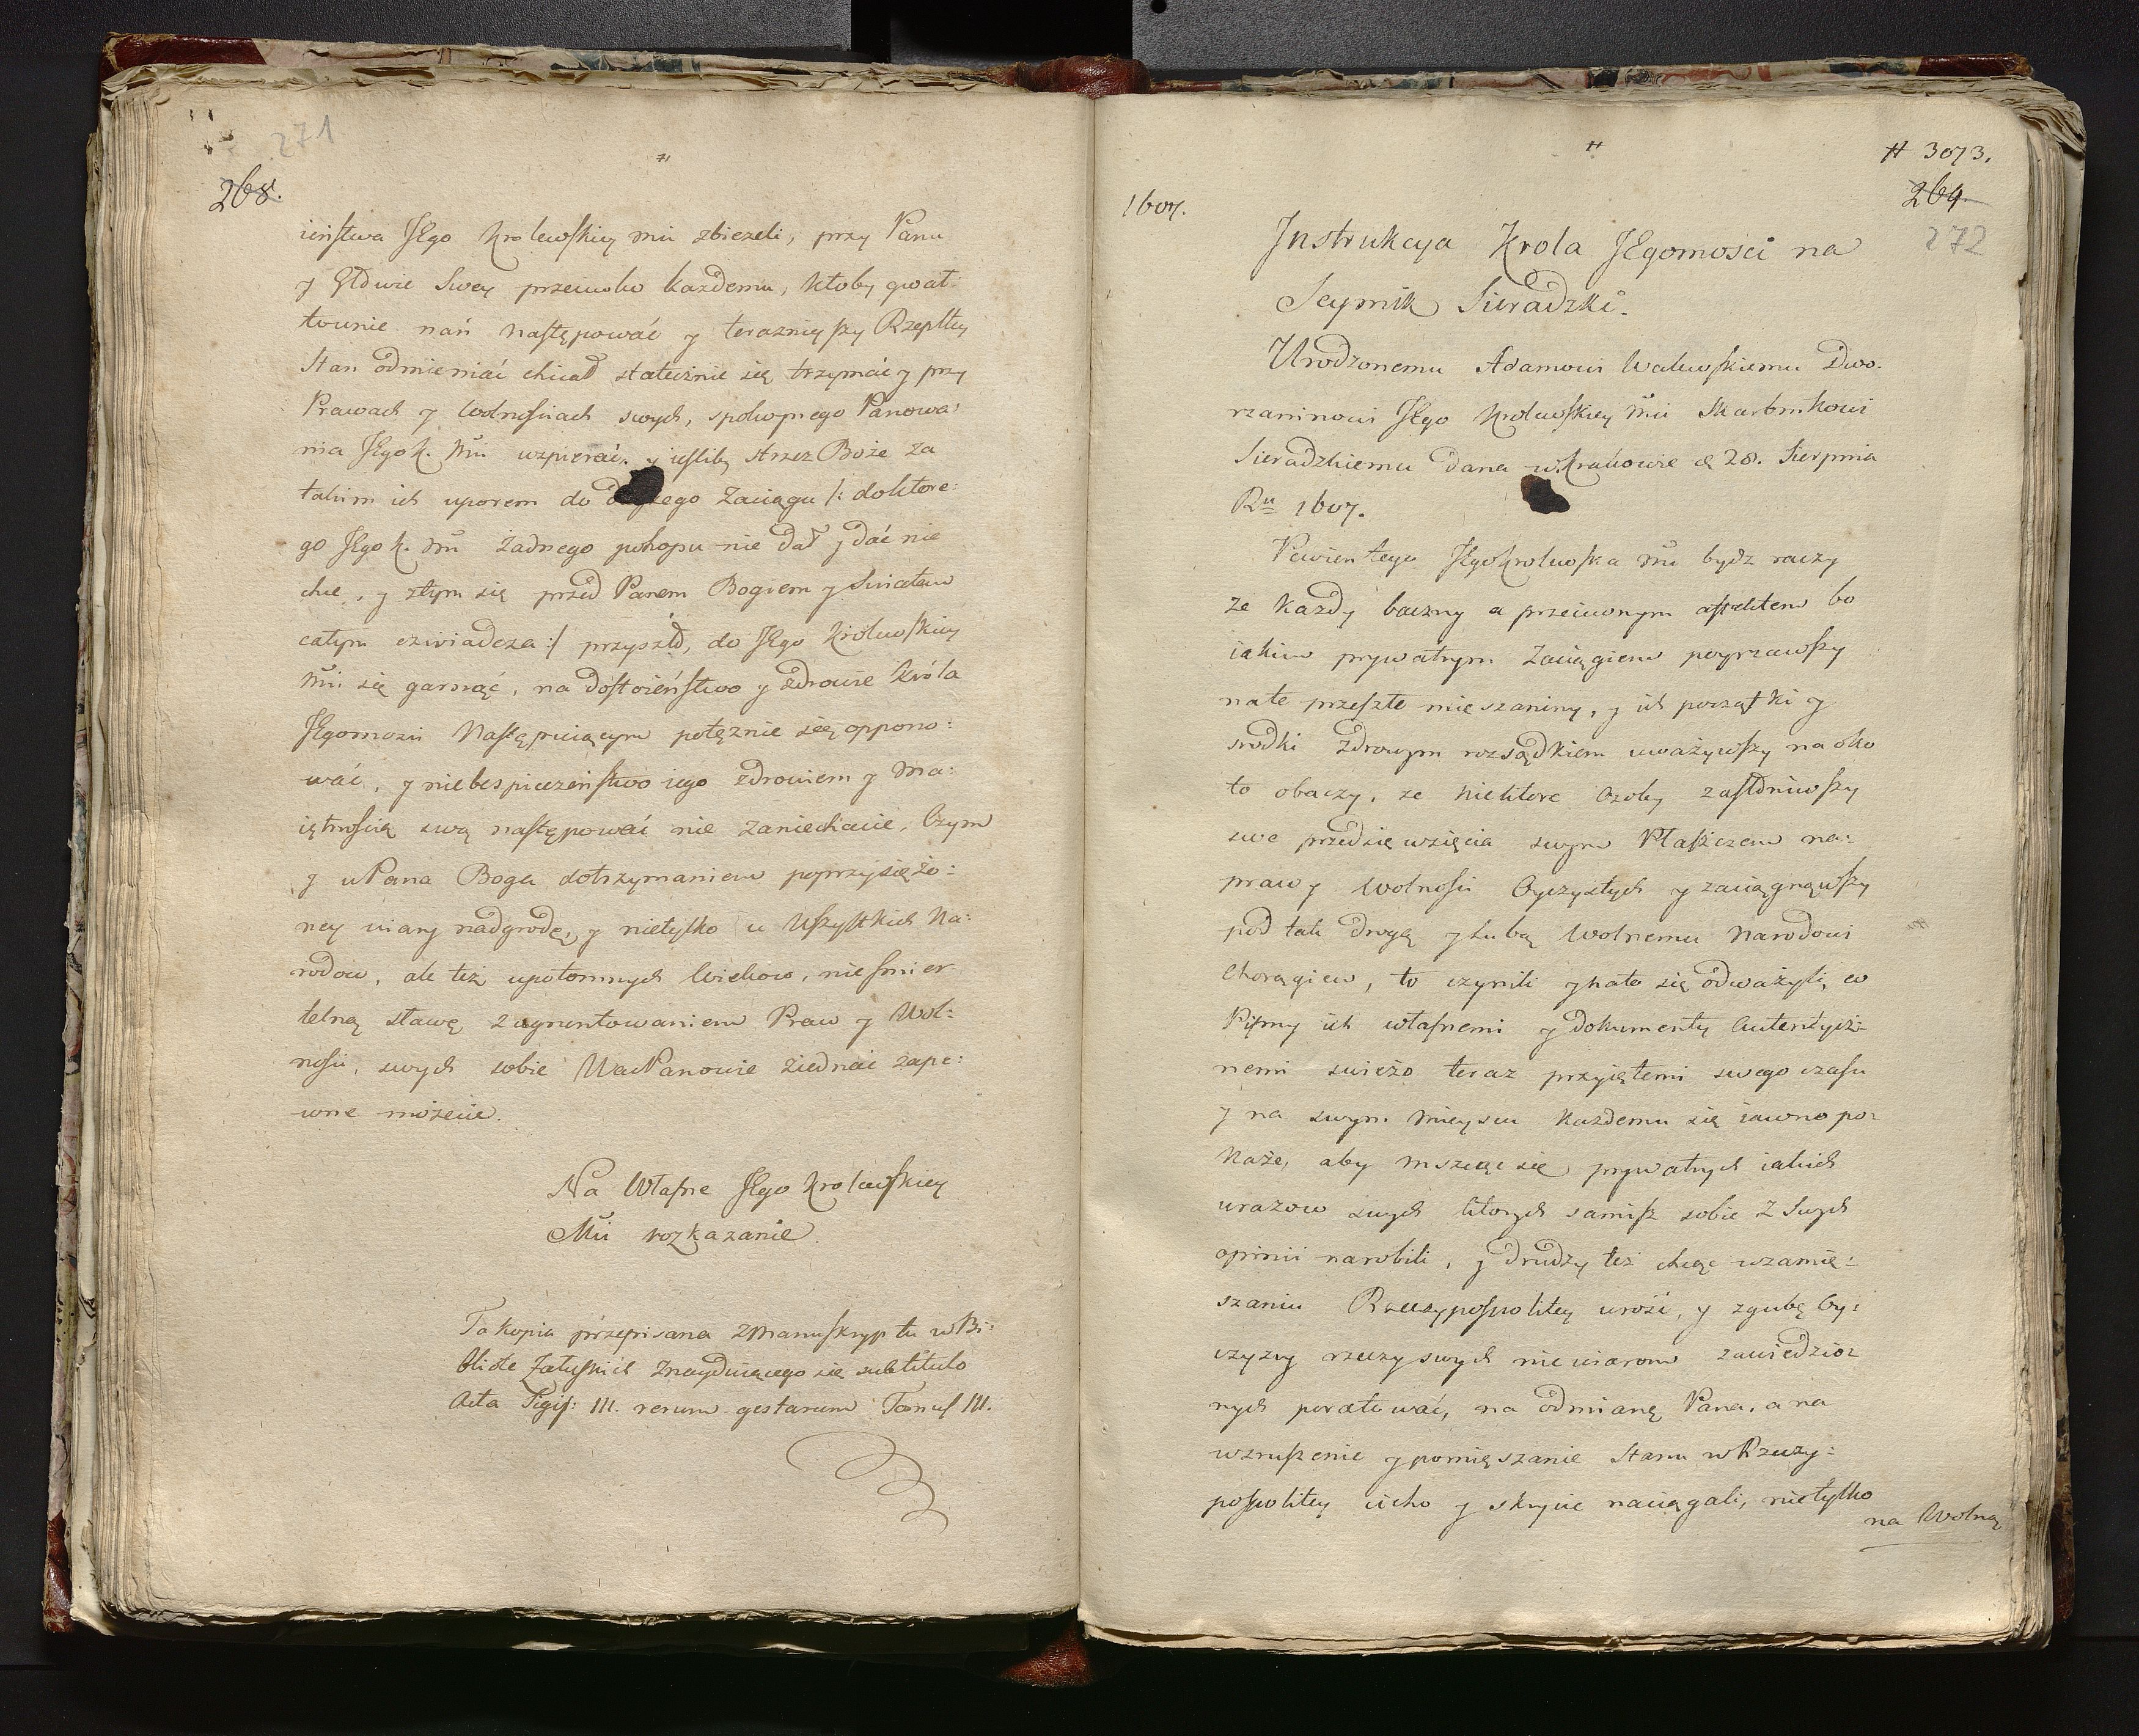 271
268.
ieństwa JEgo Krolewskiey Mci zbieżeli, przy Panu
y Głowie Swey przeciwko każdemu, któby gwał-
townie nań następować y teraznieyszy Rzeplty
Stan odmieniać chciał statecznie się trzymać y przy
Prawach y Wolnościach swych, spokoynego Panowa:
nia JEgo K. Mci wspierać. y iesliby strzez Boże za
takim ich uporem do zaciągu /: do które:
go JEgo K. Mć żadnego pohopu nie dał y dać nie
chce, y z tym się przed Panem Bogiem y Swiatem
całym oswiadcza :/ przyszło, do JEgo Królewskiey
Mci się garnąć, na dostoieństwo y zdrowie Króla
JEgomości Następuiącym potężnie się oppono:
wać, y niebespieczeństwo iego zdrowiem y Ma:
iętnością swą następować nie zaniechacie, Czym
y u Pana Boga dotrzymaniem poprzysiężo:
ney wiary nadgrodę, y nietylko u Wszystkich Na:
rodow, ale też upotomnych Wiekow, niesmier
telną sławę z ugruntowaniem Praw y Wol:
ności, swych sobie WaćPanowie ziednać zape:
wne możecie.
Na Własne JEgo Krolewskiey
Mci rozkazanie.
Ta Kopia przepisana z Manuskryptu w Bi:
bliote Załuskich znayduiącego się sub titulo
Acta Sigis: III. rerum gestarum Tomus III.
# 3073.
269.
272
1607.
Instrukcya Krola JEgomosci na
Seymik Sieradzki.
Urodzonemu Adamowi Walewskiemu Dwo-
rzaninowi JEgo Krolewskiey Mci Skarbnikowi
Sieradzkiemu Dana w Krakowie d 28. Sierpnia
Ru 1607.
Pewien tego JEgoKrolewska Mć bydz raczy
ze Każdy baczny a przeciwnym affektem bo
iakim prywatnym Zaciągiem poyrzawszy
na te przeszłe mieszaniny, y ich początki y
srodki Zdrowym rozsądkiem uważywszy na oko
to obaczy, ze niektore Osoby zasłoniwszy
swe przedsięwzięcia swym Płaszczem na:
praw y Wolności Oyczystych y zaciągnąwszy
pod tak drogą y lubą Wolnemu Narodowi
Chorągiew, to czynili y nato się odważyli, co
Pismy ich własnemi y Dokumenty Autentycz-
nemi swieżo teraz przyiętemi swego czasu
y na swym Mieyscu Każdemu się iawno po-
każe, aby mszcząc się prywatnych iakich
urazow swych których samisz sobie Z Swych
opinii narobili, y drudzy też chcąc wzamię-
szaniu Rzeczypospolitey urość, y zgubę Oy:
czyzny rzeczy swych niewiarom zawiedzio-
nych poratować, na odmianę Pana, a na
wzruszenie y pomięszanie Stanu w Rzeczy=
pospolitey cicho y skrycie naciągali, nietylko
na Wolną